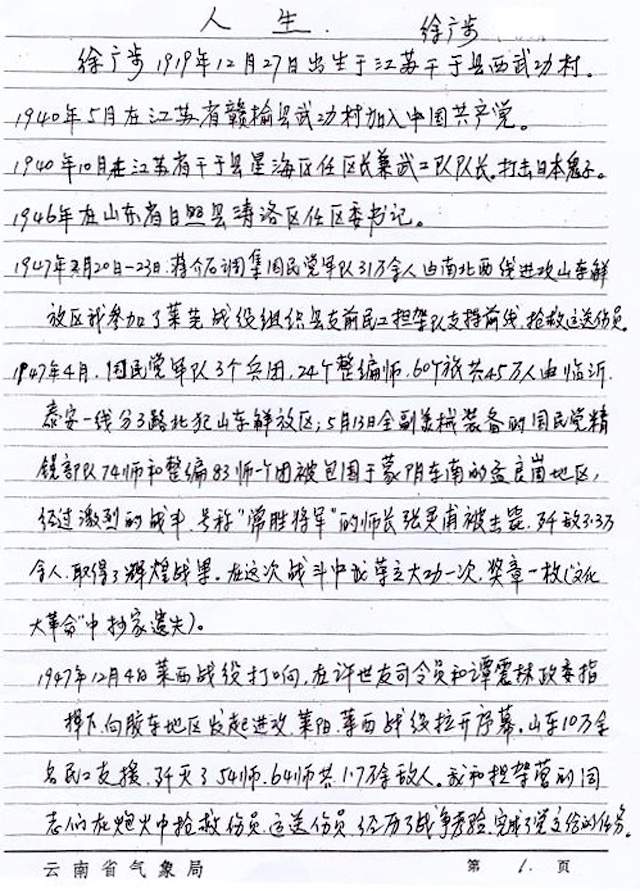 人生.
徐广步
徐广步1919年12月27日出生于江苏干于县西武功村。
1940年5月在江苏省赣榆县武功村加入中国共产党。
1940年10月在江苏省干于县星海区任区长兼武工队队长。打击日本鬼子。
1946年在山东省日照县涛洛区任区委书记。
1947年2月20日-23日.蒋介石调集国民党军队31万余人由南北两线进攻山东解
放区我参加了莱芜战役组织县支前民工担架队支持前线.抢救运送伤员.
1947年4月.国民党军队3个兵团,24个整编师.60个旅共45万人由临沂.
泰安一线分3路北犯山东解放区;5月13日全副美械装备的国民党精
锐部队74师和整编83师一个团被包围于蒙阴东南的孟良崮地区,
经过激烈的战斗.号称"常胜将军"的师长张灵甫被击毙.歼敌3.3万
余人.取得了辉煌战果。在这次战斗中我荣立大功一次,奖章一枚("文化
大革命"中抄家遗失)。
1947年12月4日莱西战役打响,在许世友司令员和谭震林政委指
挥下.向胶东地区发起进攻.莱阳.莱西战役拉开序幕。山东10万余
名民工支援.歼灭了54师.64师共1.7万余敌人。我和担架营的同
志们在炮火中抢救伤员.运送伤员.经历了战争考验.完成了党交给的任务。
云南省气象局 第 1. 页